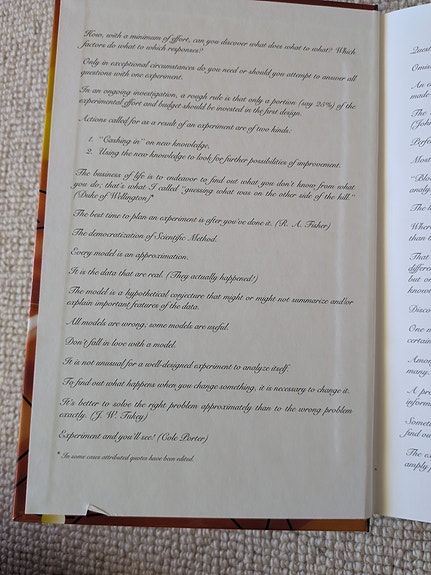 How, with a minimum of effort, can you discover what does what to what? Which
factors do what to which responses?
Only in exceptional circumstances do you need or should you attempt to answer all
questions with one experiment.
In an ongoing investigation, a rough rule is that only a portion (say 25%) of the
experimental effort and budget should be invested in the first design.
Actions called for as a result of an experiment are of two kinds:
1. "Cashing in" on new knowledge.
2. Using the new knowledge to look for further possibilities of improvement.
The business of life is to endeavor to find out what you don't know from what
you do; that's what I called "guessing what was on the other side of the hill."
(Duke of Wellington)*
The best time to plan an experiment is after you've done it. (R. A. Fisher)
The democratization of Scientific Method.
Every model is an approximation.
It is the data that are real. (They actually happened!)
The model is a hypothetical conjecture that might or might not summarize and/or
explain important features of the data.
All models are wrong; some models are useful.
Don't fall in love with a model.
It is not unusual for a well-designed experiment to analyze itself.
To find out what happens when you change something, it is necessary to change it.
It's better to solve the right problem approximately than to the wrong problem
exactly. (J. W. Tukey)
Experiment and you'll see! (Cole Porter)
* In some cases attributed quotes have been edited.
An
made
The
(John
Most
analy
The
than
That
differ
but or
know
One
certain
Among
many.
A
inform
find ou
The
amply